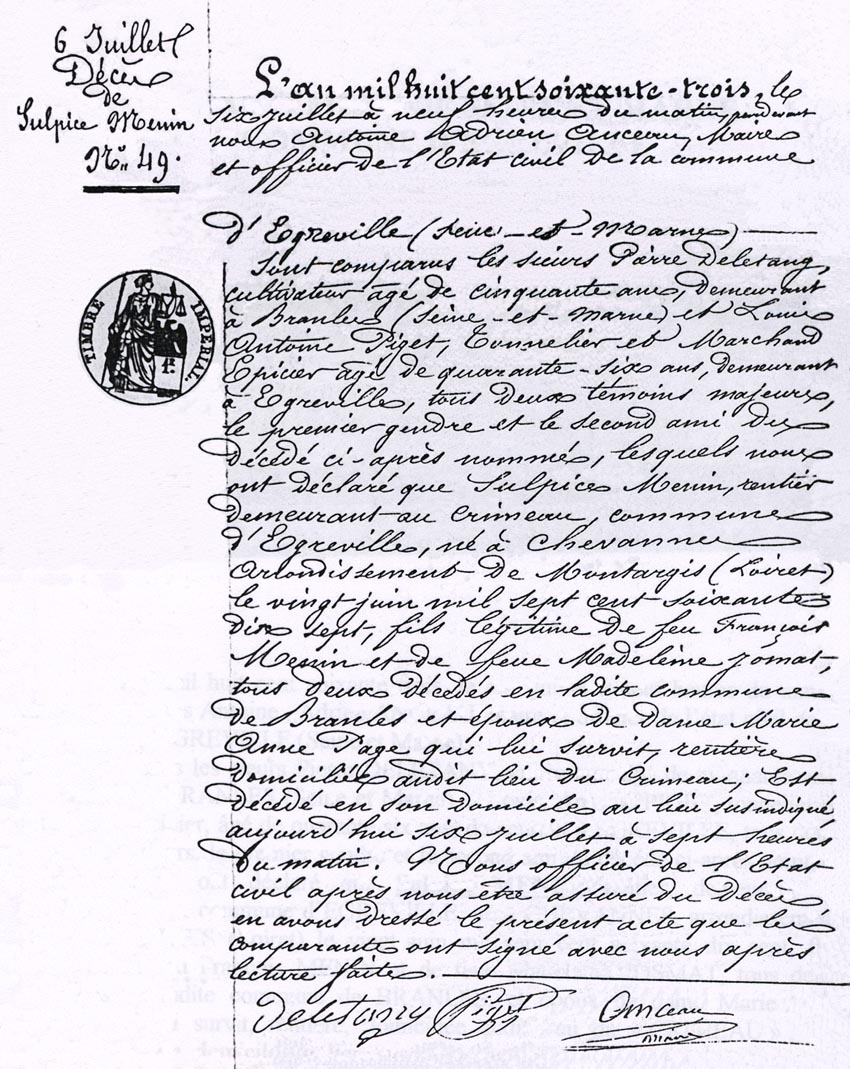 6 Juillet
Décès
de
Sulpice Menin
N° 49.
L'an mil huit cent soixante-trois, le
six juillet à neuf heures du matin, pardevant
nous Antoine Adrien Anceau, Maire
et officier de l'Etat civil de la commune
d'Egreville (Seine-et-Marne)
Sont comparus les sieurs Pierre Deletang,
cultivateur âgé de cinquante ans, demeurant
à Branles (Seine-et-Marne) et Louis
Antoine Piget, Tonnelier et Marchand
Epicier âgé de quarante-six ans, demeurant
à Egreville, tous deux témoins majeurs,
le premier gendre et le second ami du
décédé ci-après nommé, lesquels nous
ont déclaré que Sulpice Menin, rentier
demeurant au Crimeau, commune
d'Egreville, né à Chevannes
Arrondissement de Montargis (Loiret)
le vingt juin mil sept cent soixante
dix sept, fils légitime de feu François
Menin et de feue Madeleine Jomat,
tous deux décédés en ladite commune
de Branles et époux de Dame Marie
Anne Page qui lui survit, rentière
domiciliée audit lieu du Crimeau; Est
décédé en son domicile au lieu susindiqué
aujourd'hui six juillet à sept heures
du matin. Nous officier de l'Etat
civil après nous être assuré du Décès
en avons dressé le présent acte que les
comparants ont signé avec nous après
lecture faite
TIMBRE IMPERIAL.
Deletang Piget Anceau
Maire